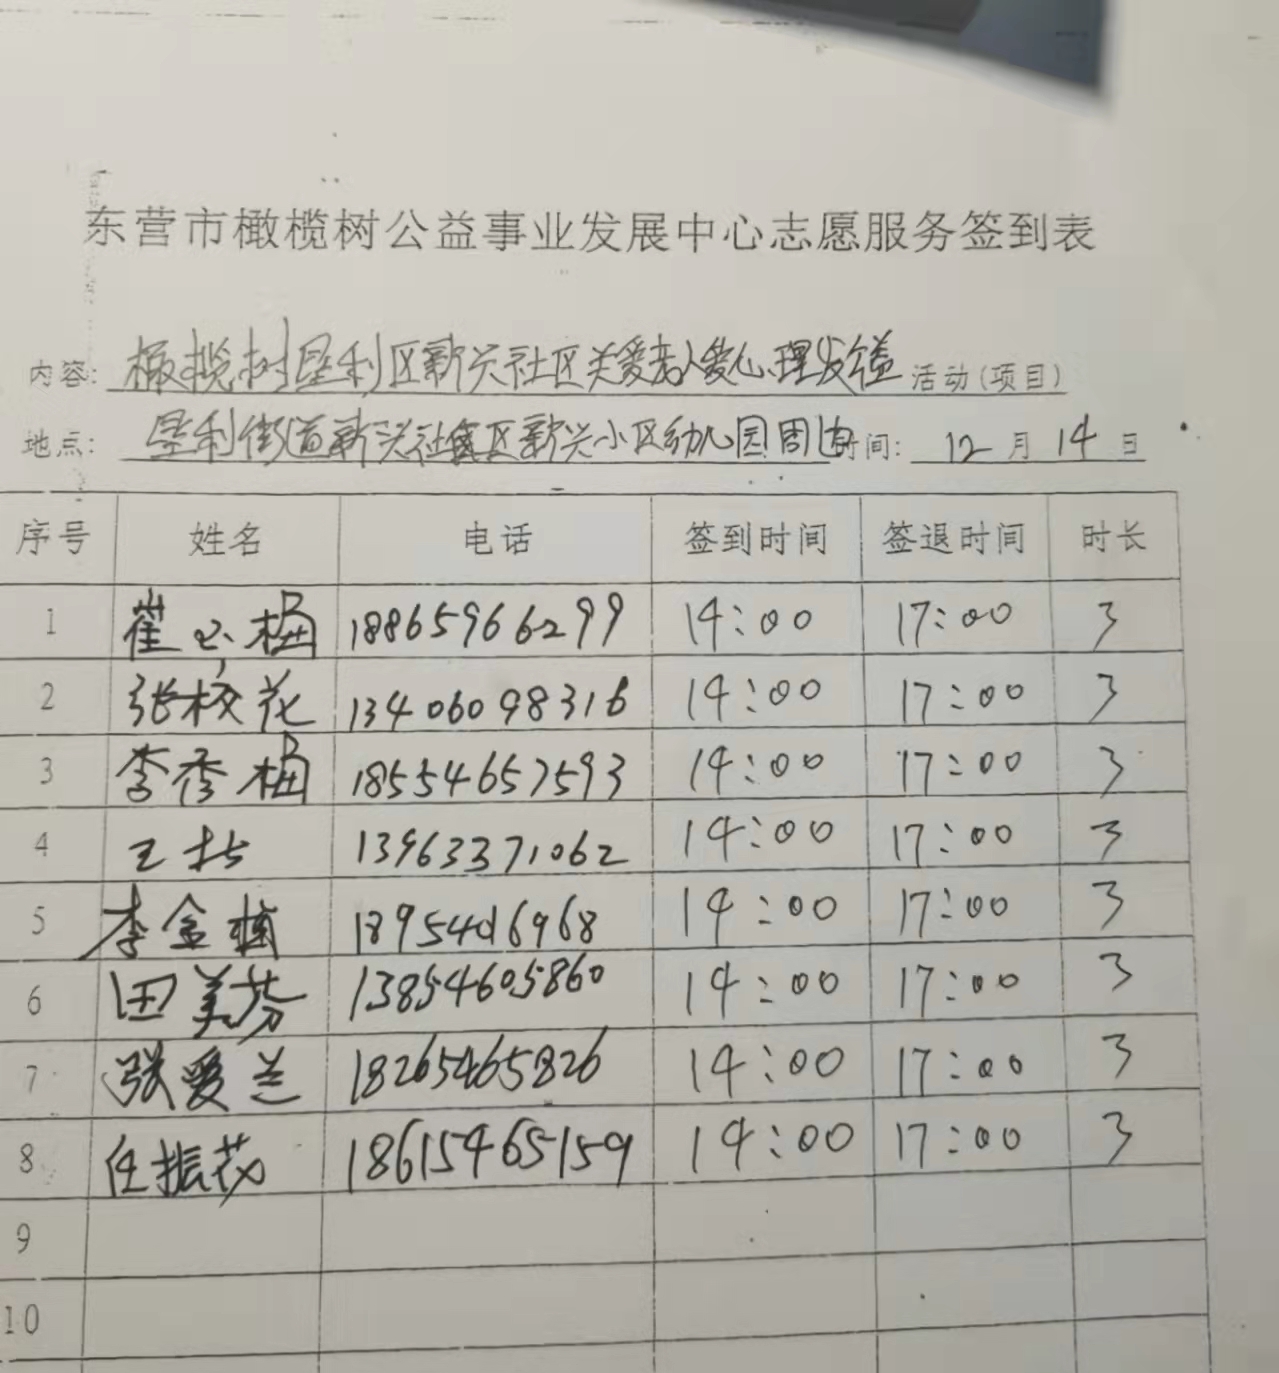 东营市橄榄树公益事业发展中心志愿服务签到表
内容: 橄榄树垦利区新兴社区关爱老人爱心理发 活动(项目)
地点: 垦利街道新兴社区新兴小区幼儿园周边 时间: 12月14日
序号 姓名 电话 签到时间 签退时间 时长
1 崔 梅 18865966299 14:00 17:00 3
2 张校花 13406098316 14:00 17:00 3
3 李秀梅 18554657593 14:00 17:00 3
4 王 13963371062 14:00 17:00 3
5 李金 18954016968 14:00 17:00 3
6 田美芬 13854605860 14:00 17:00 3
7 张爱兰 18265465826 14:00 17:00 3
8 任振 18615465159 14:00 17:00 3
9
10